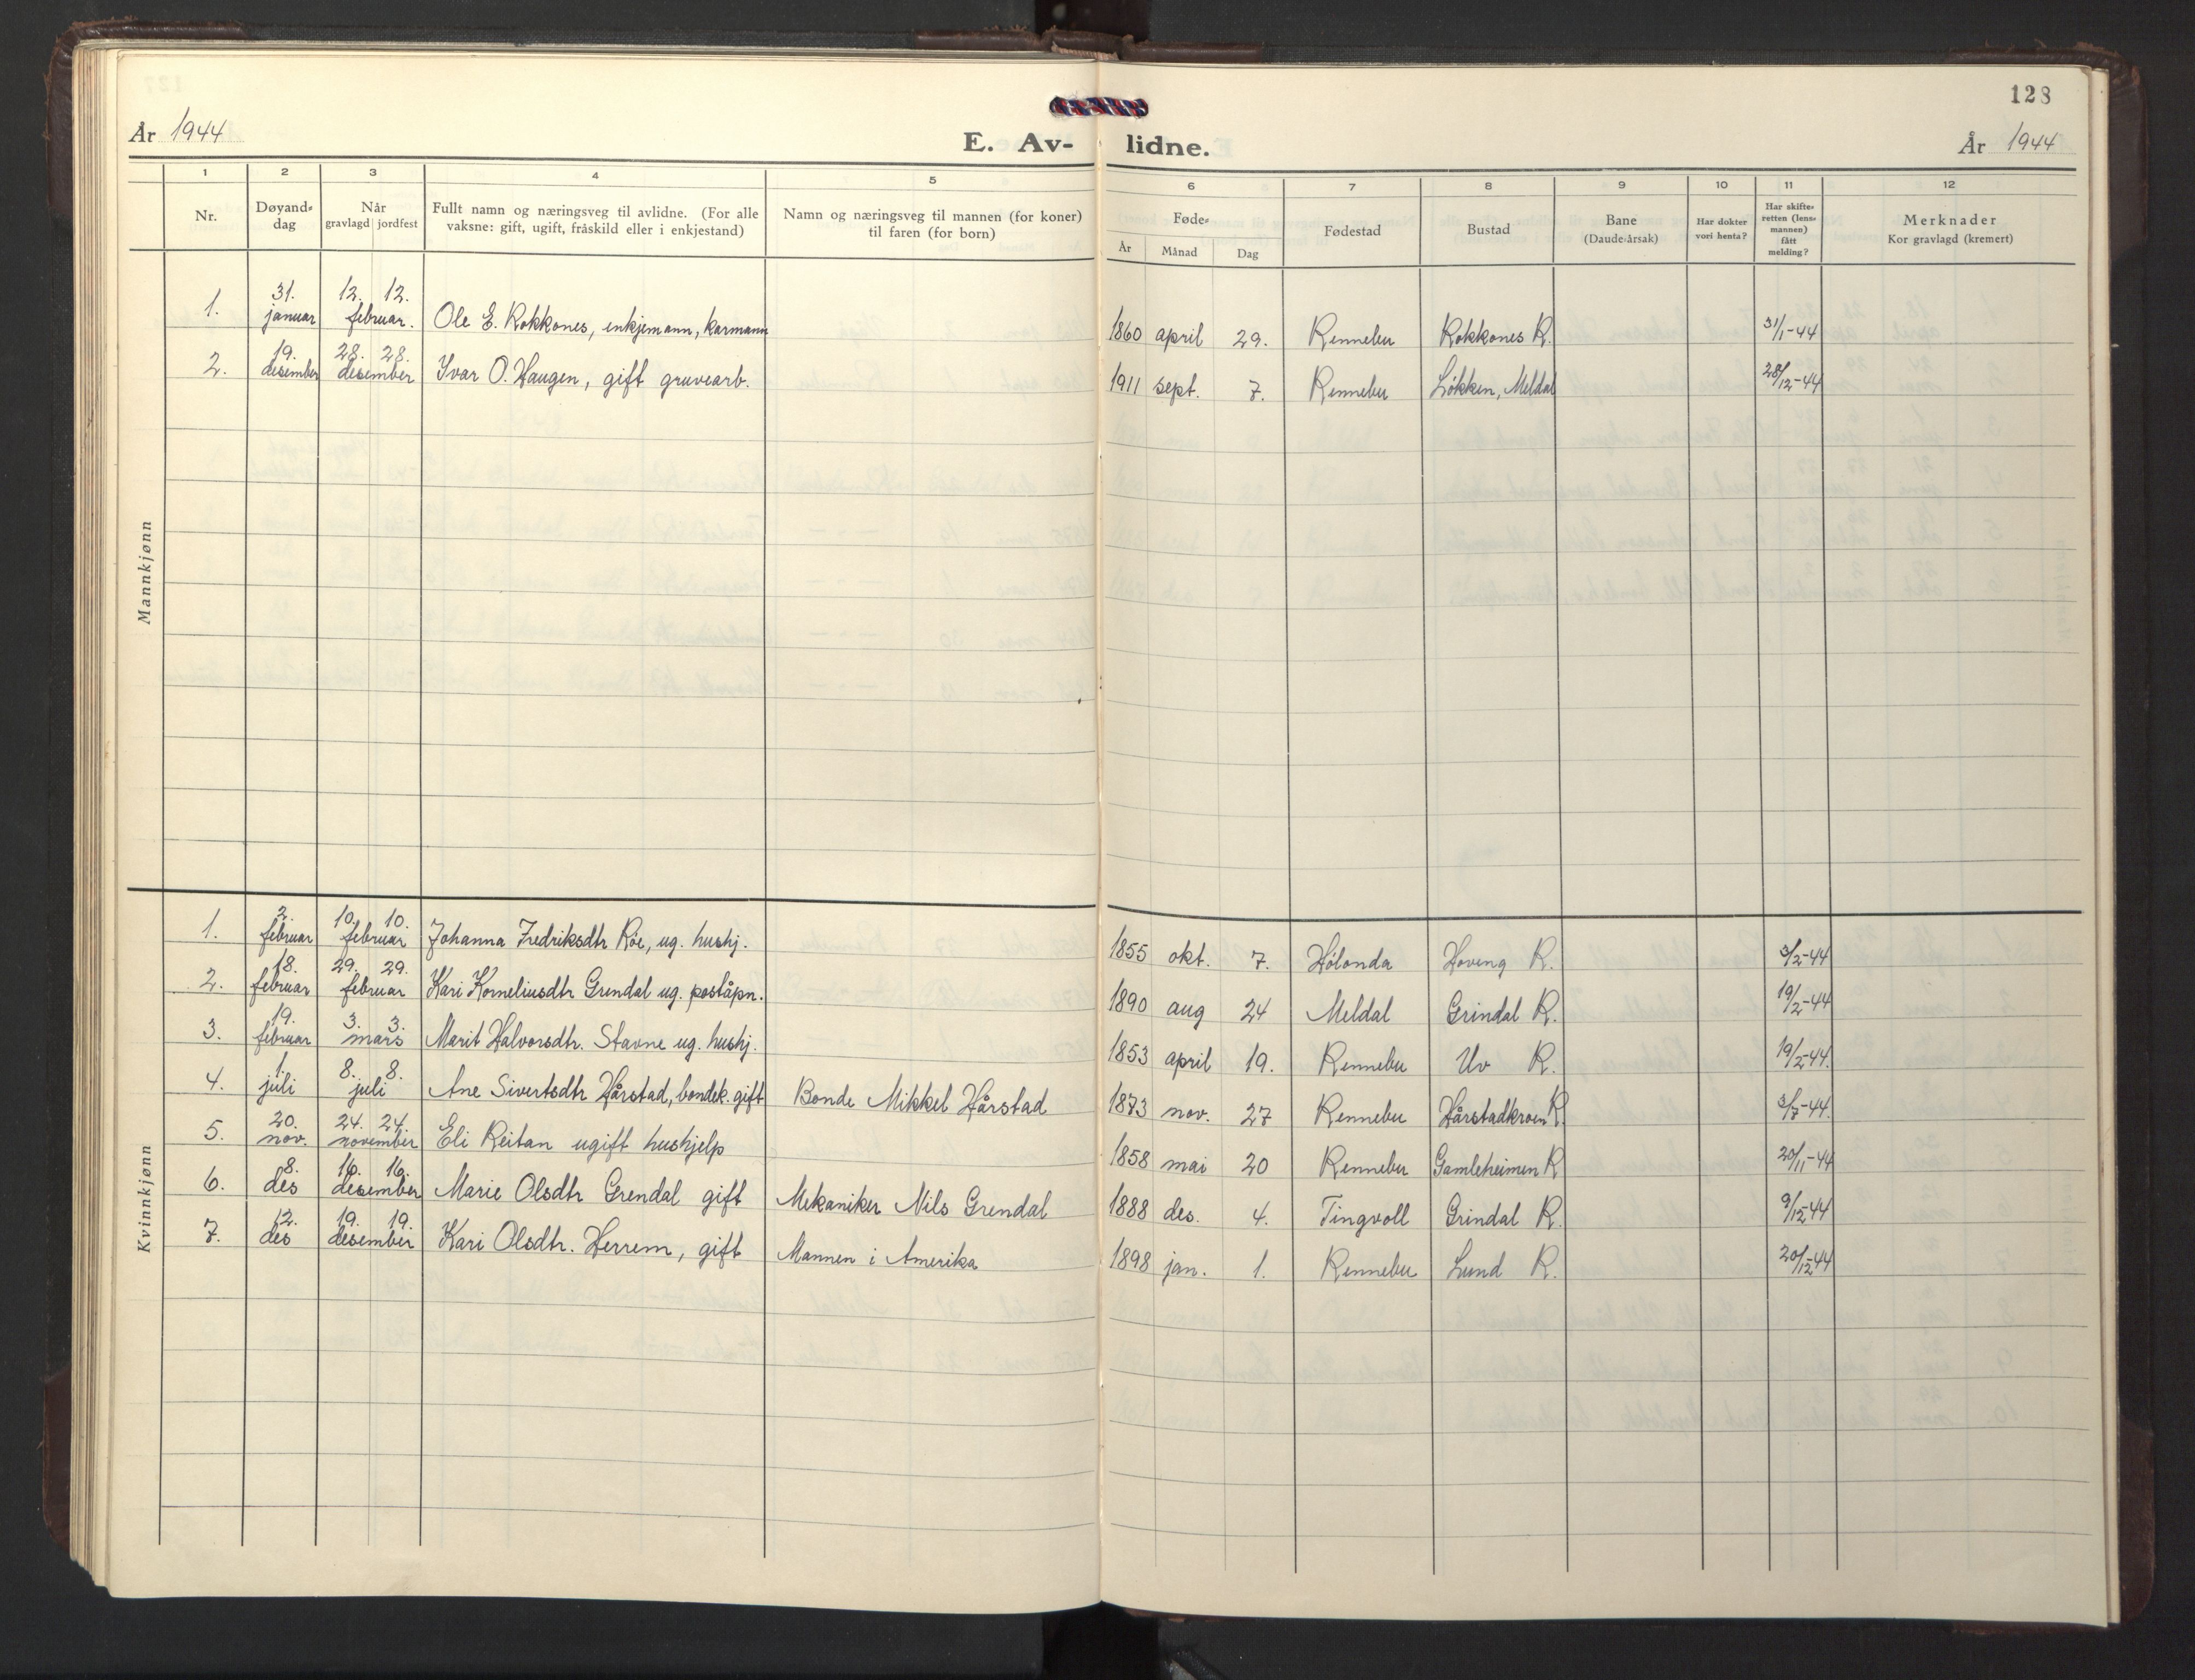 128
År 1944 E. Av- lidne. År 1944
1 2 3 4 5 6 7 8 9 10 11 12
Nr. Døyand-dag Når gravlagd jordfest Fullt namn og næringsveg til avlidne. (For alle vaksne: gift, ugift, fråskild eller i enkjestand) Namn og næringsveg til mannen (for koner) til faren (for born) Føde- År Månad Dag Fødestad Bustad Bane (Daude-årsak) Har dokter vori henta? Har skifte-retten (lens-mannen) fått melding? Merknader Kor gravlagd (kremert)
Mannkjønn
1. 31. januar 12. 12. februar. Ole E. Rokkones, enkjemann, kårmann 1860 april 29. Rennebu Rokkones R. 31/1-44
2. 19. desember 28. 28. desember Ivar O. Haugen, gift gruvearb. 1911 sept. 7. Rennebu Løkken, Meldal 28/12-44
Kvinnkjønn
1. 2. februar 10. 10. februar Johanna Fredriksdtr Røe, ug. hushj. 1855 okt. 7. Hølonda Hoveng R. 3/2-44
2. 18. februar 29. 29. februar Kari Korneliusdtr Grendal ug. poståpn. 1890 aug 24 Meldal Grindal R. 19/2-44
3. 19. februar 3. 3. mars Marit Halvorsdtr. Stavne ug. hushj. 1853 april 19. Rennebu Uv R. 19/2-44.
4. 1. juli 8. 8. juli Ane Sivertsdtr Hårstad, bondek. gift Bonde Mikkel Hårstad 1873 nov. 27 Rennebu Hårstadkroen R. 3/7-44.
5. 20. nov. 24. 24. november Eli Reitan ugift hushjelp 1858 mai 20 Rennebu Gamleheimen R 20/11-44
6. 8. des 16. 16. desember Marie Olsdtr Grendal gift Mekaniker Nils Grendal 1888 des. 4. Tingvoll Grindal R. 9/12-44
7. 12. des 19. 19. desember Kari Olsdtr. Herrem, gift Mannen i Amerika 1898 jan. 1. Rennebu Lund R. 20/12-44